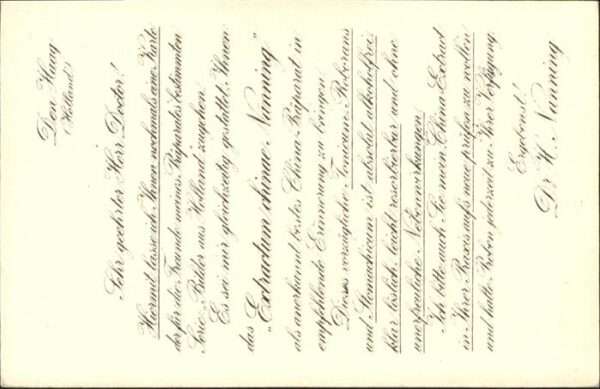 Den Haag
(Holland)
Sehr geehrter Herr Doctor!
Hiermit lasse ich Ihnen nochmals eine Karte
der für die Freunde meines Präparates bestimmten
Serie „Bilder aus Holland" zugehen.
Es sei mir gleichzeitig gestattet, Ihnen
das
„Extractum chinae Nanning"
als anerkannt bestes China-Präparat in
empfehlende Erinnerung zu bringen.
Dieses vorzügliche Tonicum, Roborans
und Stomachicum ist absolut alkoholfrei,
klar löslich, leicht resorbierbar und ohne
unerfreuliche Nebenwirkungen.
Ich bitte auch Sie mein China-Extract
in Ihrer Praxis aufs neue prüfen zu wollen
und halte Proben jederzeit zu Ihrer Verfügung.
Ergebenst!
Dr. H. Nanning